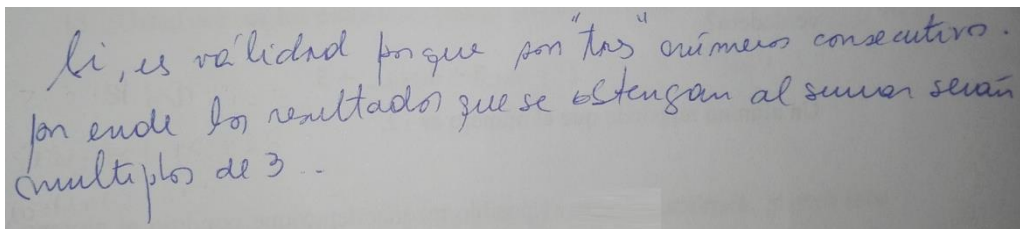 Si, es válidad porque son "tres" números consecutivos.
por ende los resultados que se obtengan al sumar serán
multiplos de 3 ..